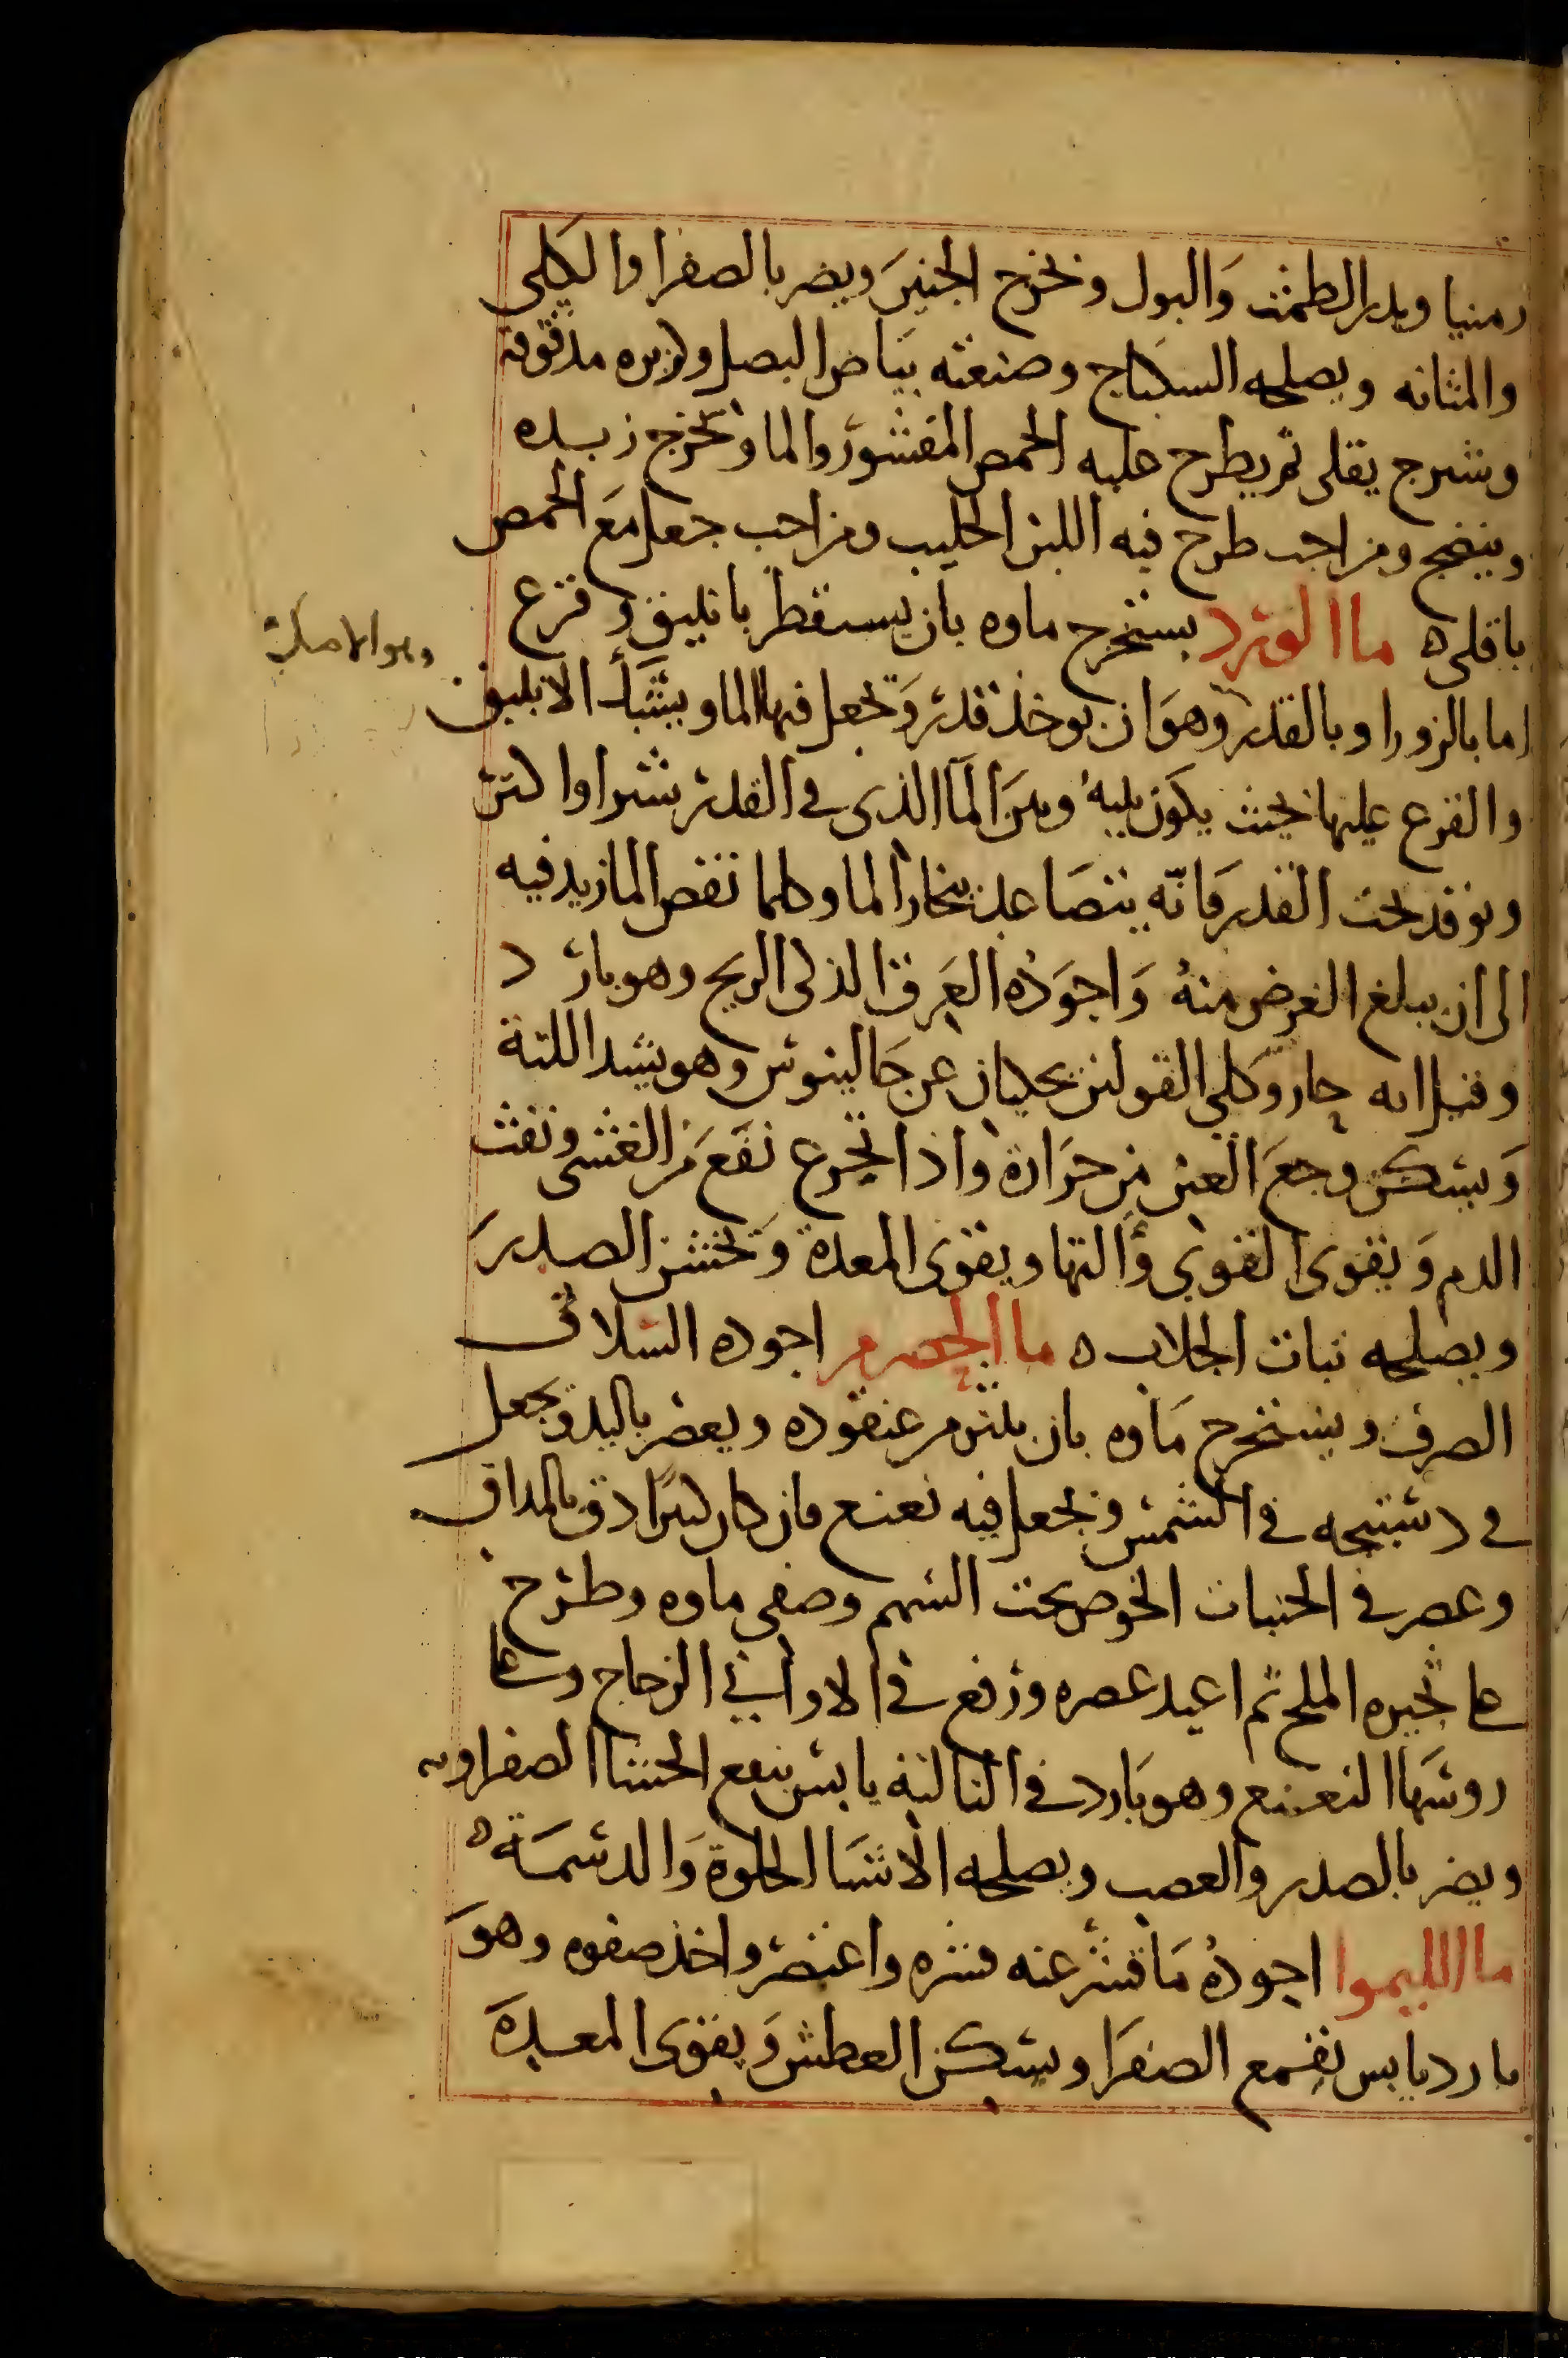 رمنيا ويدر الطمث وَالبول ويخرج الجنينَ ويضر بالصفرا والكلى
والمثانه ويصلحه السكباج وصنعته بيَاض البصل وكزبره مدقوقة
وشيرج يقلى ثم يطرح عليه الحمص المقشور والما ويخرج زبده
وينضج ومن احب طرح فيه اللبن الحليب ومن احب جعل مَع الحمص
باقلى ه ما الورد يستخرج ماوه بان يستقطر بانبيق وقرع
اما بالزور او بالقدر وهوَ ان يوخذ قدر وَيجعل فيها الما ويشبك الانبيق
والقرع عليها بحيث يكون بينه وبين الما الذى فى القدر شبرا واكثر
ويوقد تحت القدر فَانّه يتصَاعد بخار الما وكلما نقص الما زيد فيه
الى ان يبلغ الغرض منهُ وَاجوَدُه العَرق الذكى الريح وهو بارد
وقيل انه حار وكلى القولين يحكيان عن جَالينوس وهو يشد اللثة
وَيسكن وجعَ العين من حرَارة واذا تجرع نفعَ من الغشى ونفث
الدم وَيقوى القوى وَالتها ويقوى المعدة وَيخشن الصدرَ
ويصلحه نبات الجلاب ه ما الحصرم اجوده السلافى
الصرف ويستخرج مَاوه بان عنقوده ويعصر باليد ويجعل
فى دستيجه فى الشمس ويجعل فيه نعنع فان كان كثيرًا دق بالمداق
وعصر فى الجنبات الخوص تحت السهم وصفى ماوه وطرح
على ثجيره الملح ثم اعيد عصره ورفع فى الاوانى الزجاج وعلى
روسَها النعنع وهو بَارد فى الثالثة يابس ينفع الحشا الصفراويه
ويضر بالصدر والعصب ويصلحه الاشيَا الحلوة وَالدسمَة ه
ما الليموا اجودهُ مَا قشر عنه قشره واعتصر واخذ صفوه وهوَ
بارد يابس يقمع الصفرَا ويسكن العطش وَيقوى المعدةَ